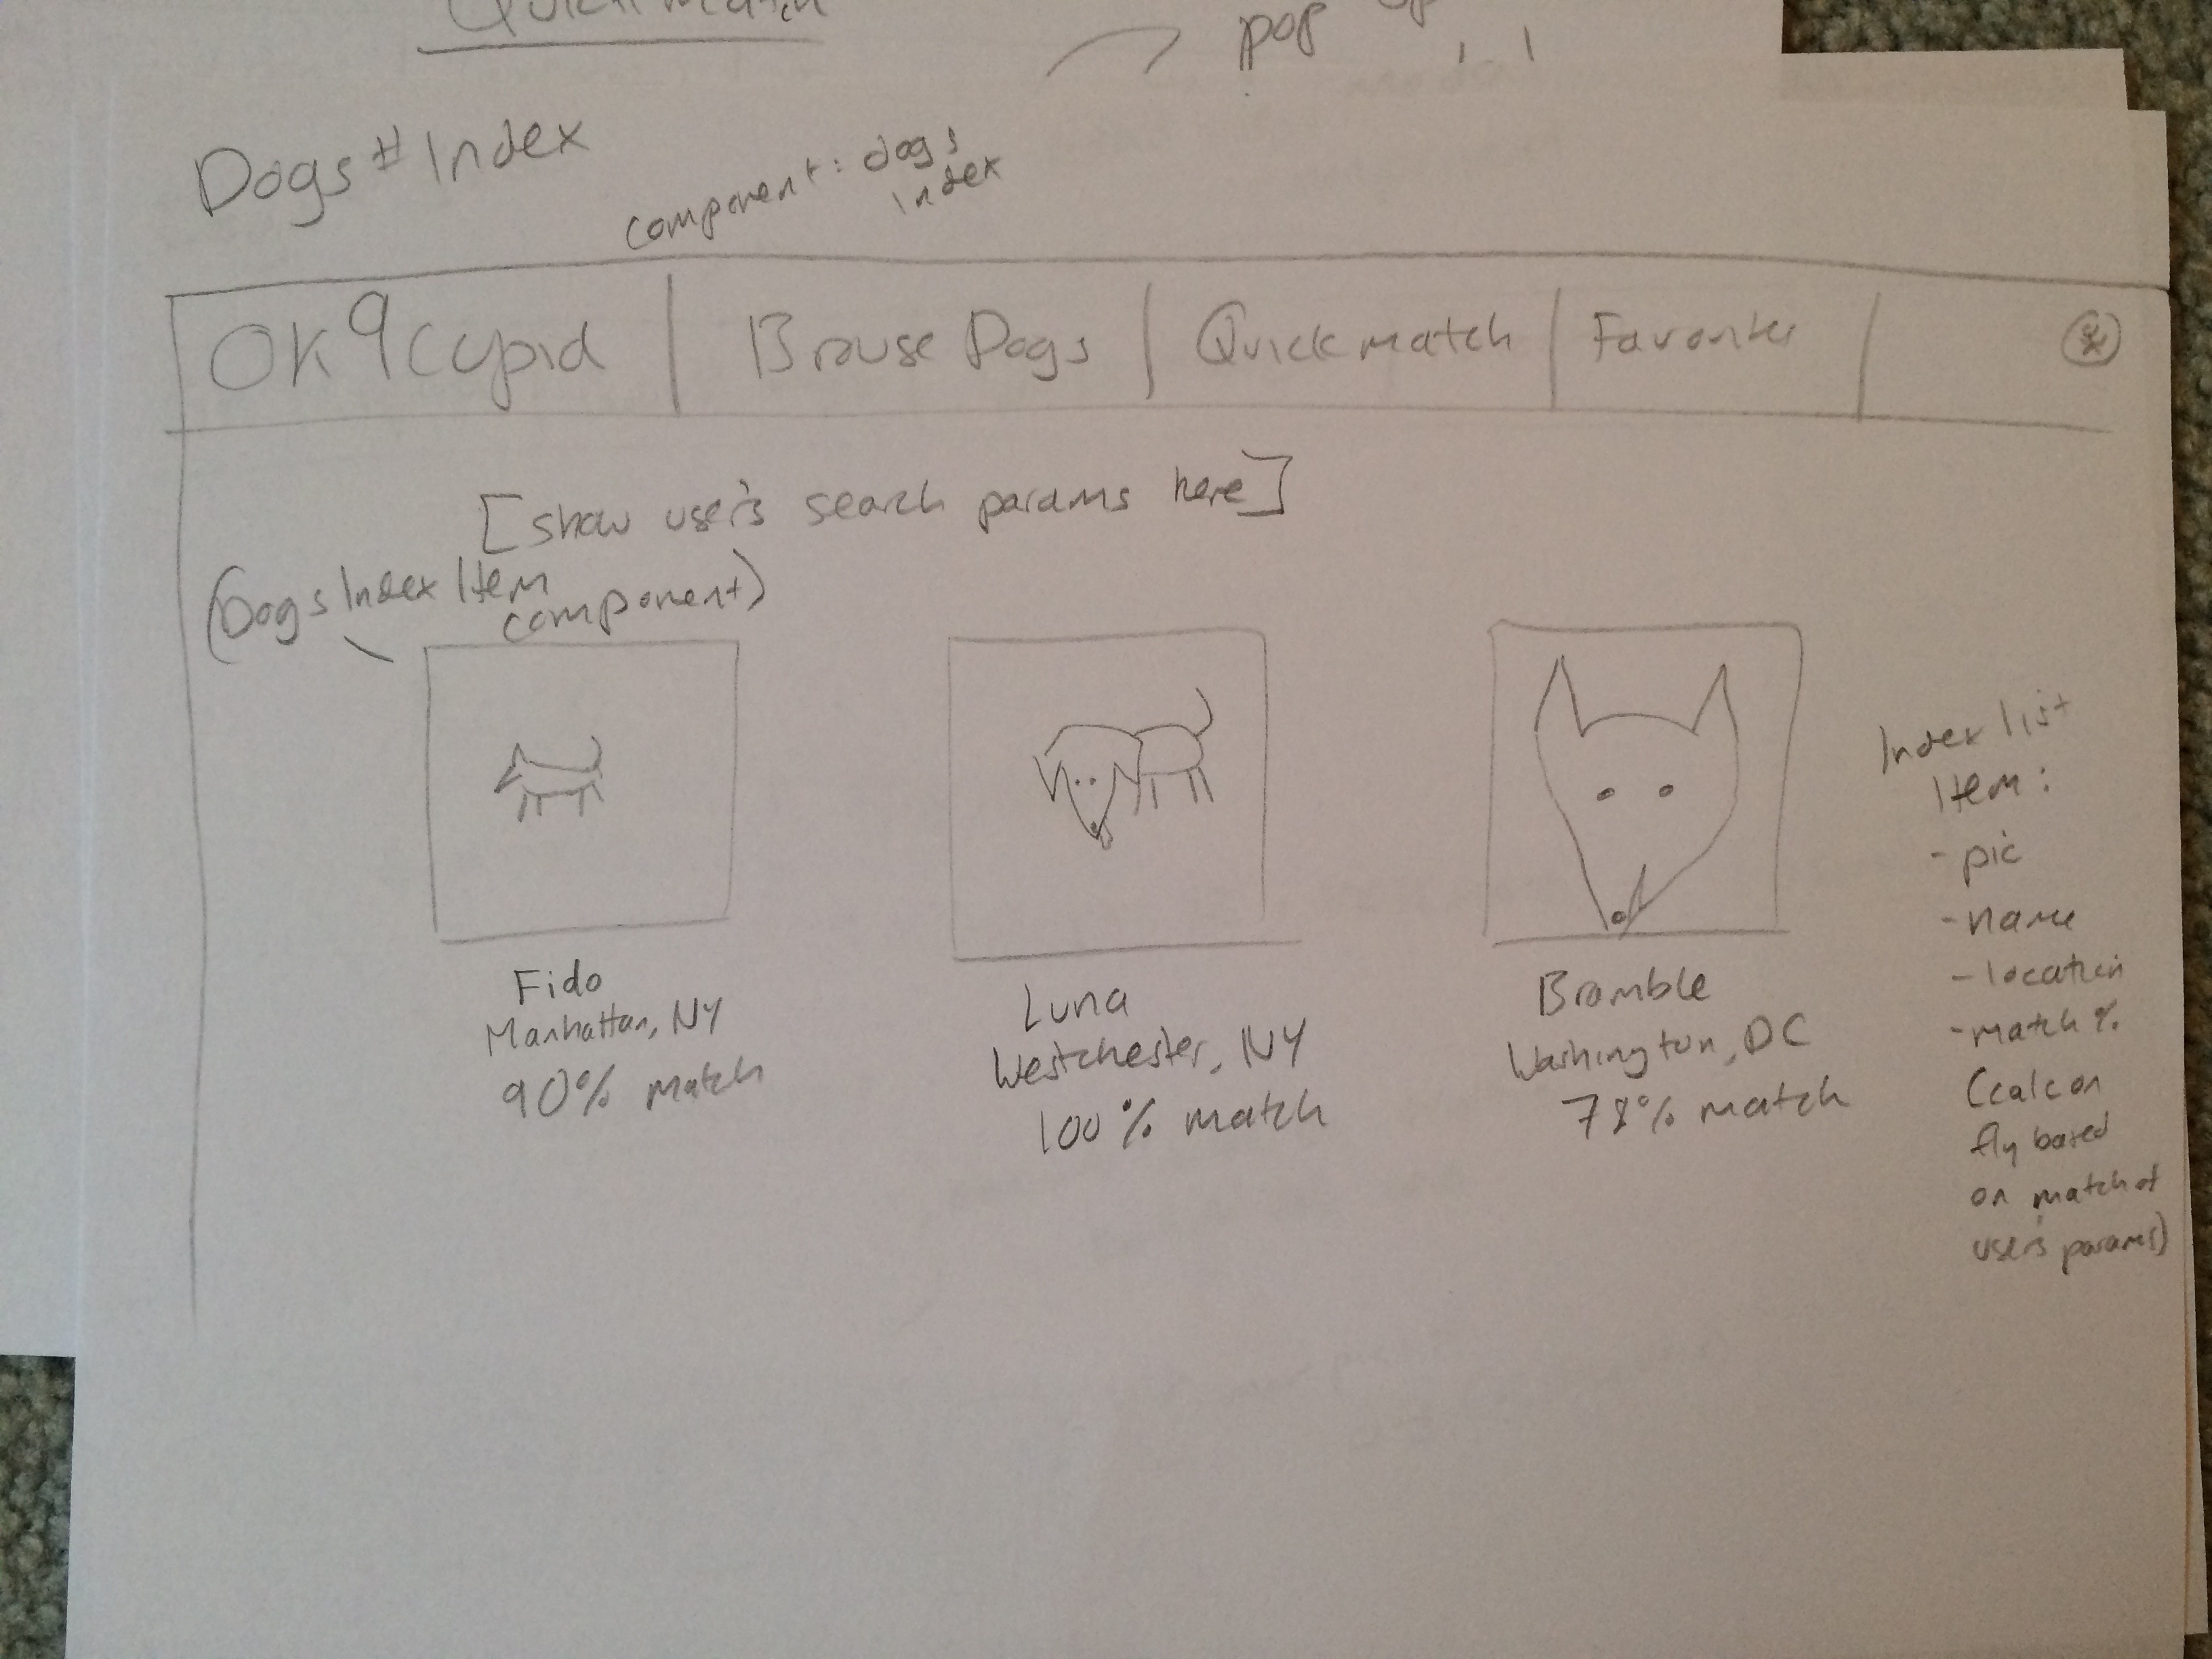 Quickmatch
pop up
modal
Dogs#Index
component: dogs
index
OK9Cupid
Browse Dogs
Quickmatch
Favorites
[show user's search params here]
(DogsIndexItem
component)
Fido
Manhattan, NY
90% match
Luna
Westchester, NY
100% match
Bramble
Washington, DC
78% match
Index list
Item:
- pic
- name
- location
- match %
(calc on
fly based
on match of
user's params)